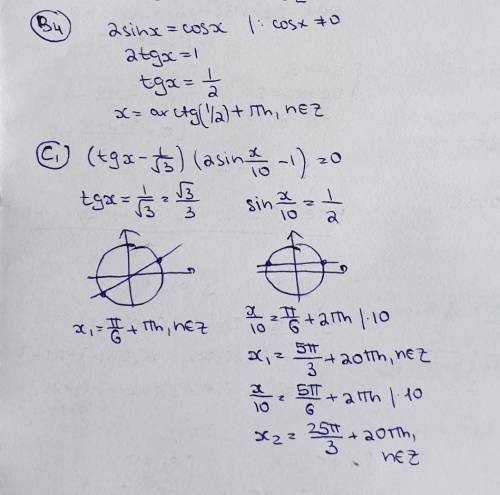 B4 2sinx = cosx |: cosx ≠ 0
2tgx = 1
tgx = 1/2
x = arctg(1/2) + πn, n∈Z
C1 (tgx - 1/√3) (2sin x/10 - 1) = 0
tgx = 1/√3 = √3/3 sin x/10 = 1/2
x₁ = π/6 + πn, n∈Z
x/10 = π/6 + 2πn |·10
x₁ = 5π/3 + 20πn, n∈Z
x/10 = 5π/6 + 2πn |·10
x₂ = 25π/3 + 20πn,
n∈Z